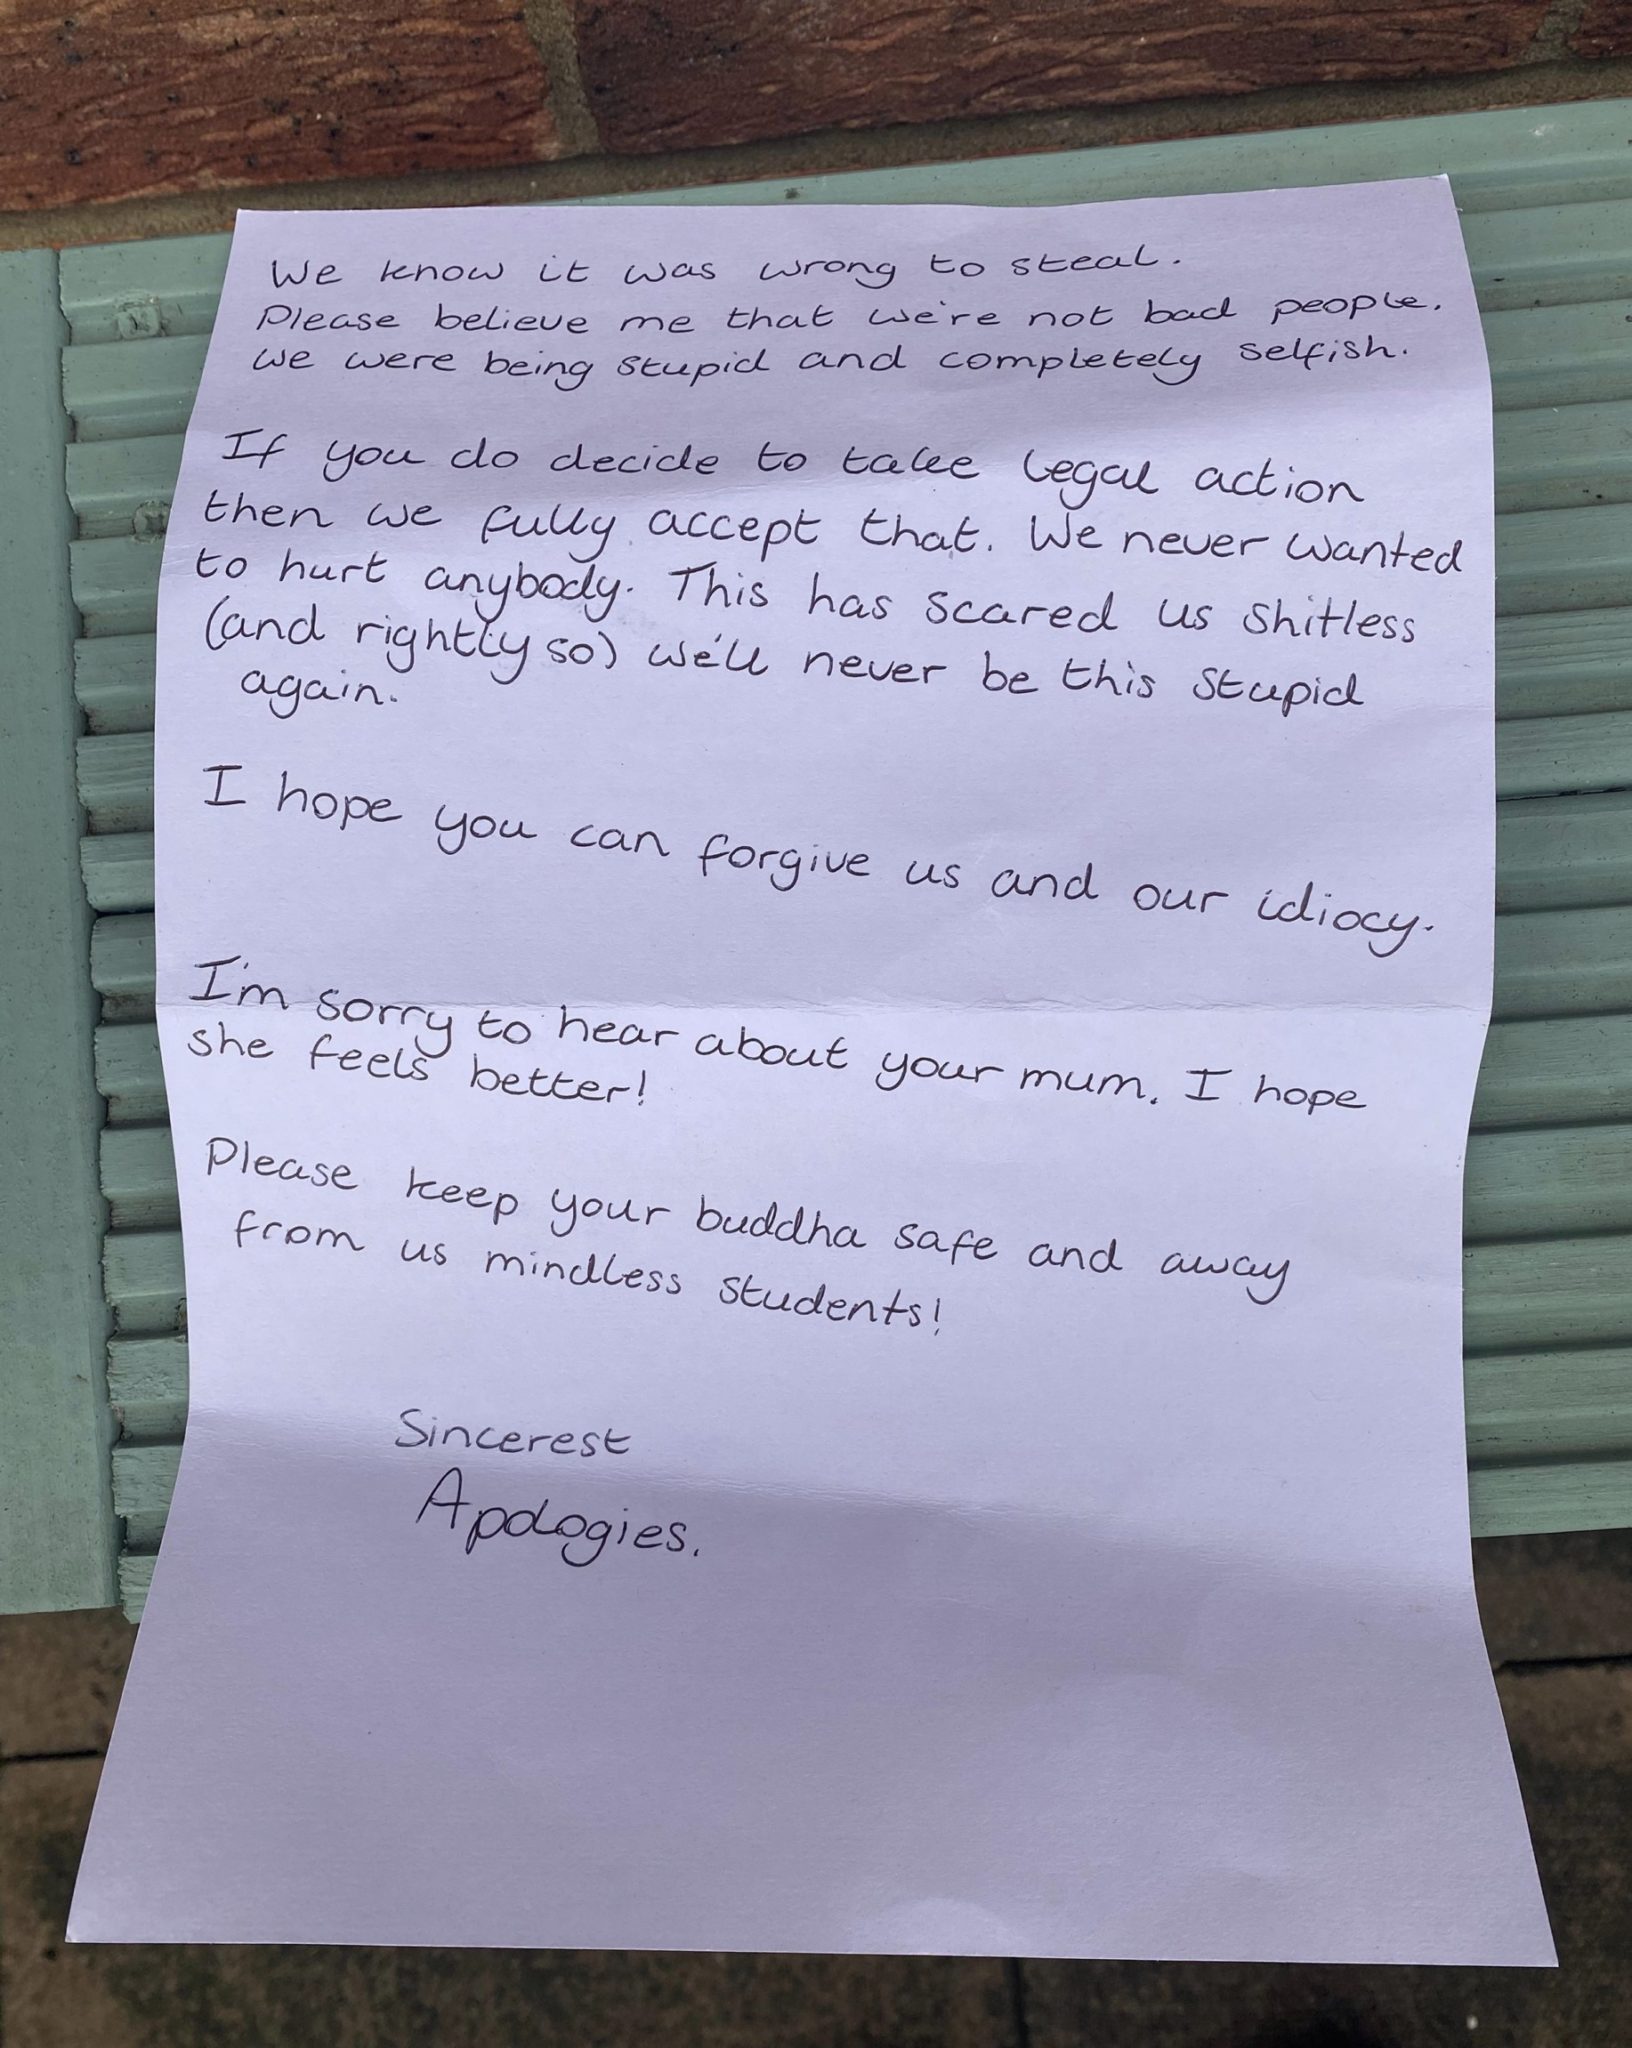 We know it was wrong to steal.
Please believe me that we're not bad people.
We were being stupid and completely selfish.
If you do decide to take legal action
then we fully accept that. We never wanted
to hurt anybody. This has scared us shitless
(and rightly so) we'll never be this stupid
again.
I hope you can forgive us and our idiocy.
I'm sorry to hear about your mum. I hope
she feels better!
Please keep your buddha safe and away
from us mindless students!
Sincerest
Apologies.